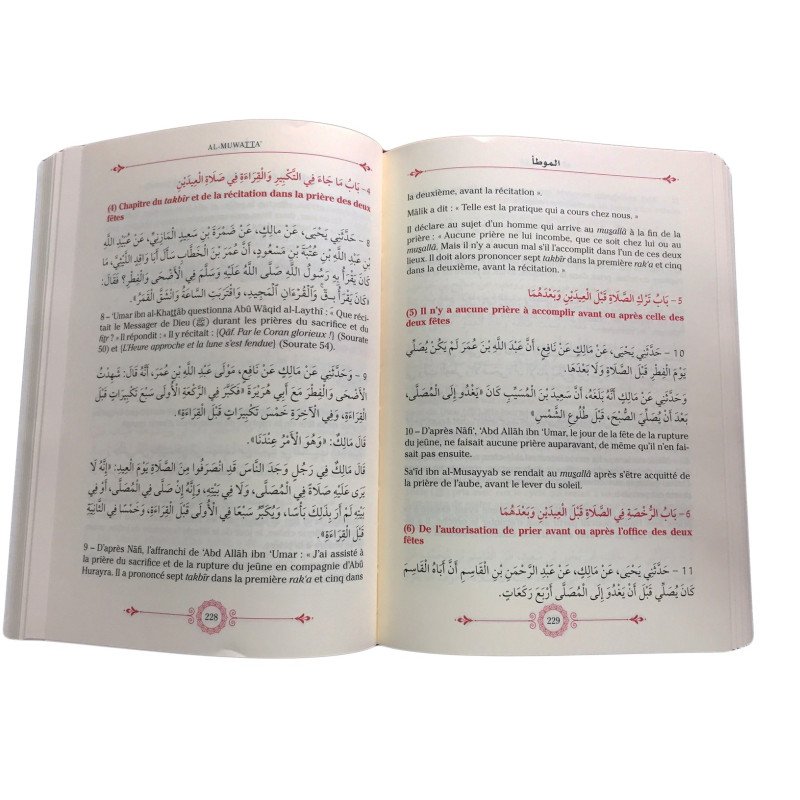 AL-MUWAṬṬA'
4 – بَابُ مَا جَاءَ فِي التَّكْبِيرِ وَالْقِرَاءَةِ فِي صَلَاةِ الْعِيدَيْنِ
(4) Chapitre du takbîr et de la récitation dans la prière des deux
fêtes
8 – حَدَّثَنِي يَحْيَى، عَنْ مَالِكٍ، عَنْ ضَمْرَةَ بْنِ سَعِيدٍ الْمَازِنِيِّ، عَنْ عُبَيْدِ اللَّهِ
بْنِ عَبْدِ اللَّهِ بْنِ عُتْبَةَ بْنِ مَسْعُودٍ، أَنَّ عُمَرَ بْنَ الْخَطَّابِ سَأَلَ أَبَا وَاقِدٍ اللَّيْثِيَّ، مَا
كَانَ يَقْرَأُ بِهِ رَسُولُ اللَّهِ صَلَّى اللَّهُ عَلَيْهِ وَسَلَّمَ فِي الْأَضْحَى وَالْفِطْرِ؟ فَقَالَ:
«كَانَ يَقْرَأُ بِـقَ وَالْقُرْءَانِ الْمَجِيدِ، وَاقْتَرَبَتِ السَّاعَةُ وَانْشَقَّ الْقَمَرُ».
8 – 'Umar ibn al-Khaṭṭâb questionna Abû Wâqid al-Laythî : « Que réci-
tait le Messager de Dieu (ﷺ) durant les prières du sacrifice et du
fiṭr ? » Il répondit : « Il y récitait : {Qâf. Par le Coran glorieux !} (Sourate
50) et {L'Heure approche et la lune s'est fendue} (Sourate 54).
9 – وَحَدَّثَنِي عَنْ مَالِكٍ عَنْ نَافِعٍ، مَوْلَى عَبْدِ اللَّهِ بْنِ عُمَرَ، أَنَّهُ قَالَ: شَهِدْتُ
الْأَضْحَى وَالْفِطْرَ مَعَ أَبِي هُرَيْرَةَ «فَكَبَّرَ فِي الرَّكْعَةِ الْأُولَى سَبْعَ تَكْبِيرَاتٍ قَبْلَ
الْقِرَاءَةِ، وَفِي الْآخِرَةِ خَمْسَ تَكْبِيرَاتٍ قَبْلَ الْقِرَاءَةِ».
قَالَ مَالِكٌ: «وَهُوَ الْأَمْرُ عِنْدَنَا».
قَالَ مَالِكٌ فِي رَجُلٍ وَجَدَ النَّاسَ قَدِ انْصَرَفُوا مِنَ الصَّلَاةِ يَوْمَ الْعِيدِ: «إِنَّهُ لَا
يَرَى عَلَيْهِ صَلَاةً فِي الْمُصَلَّى، وَلَا فِي بَيْتِهِ، وَإِنَّهُ إِنْ صَلَّى فِي الْمُصَلَّى، أَوْ فِي
بَيْتِهِ، لَمْ أَرَ بِذَلِكَ بَأْسًا، وَيُكَبِّرُ سَبْعًا فِي الْأُولَى قَبْلَ الْقِرَاءَةِ، وَخَمْسًا فِي الثَّانِيَةِ
قَبْلَ الْقِرَاءَةِ».
9 – D'après Nâfi, l'affranchi de 'Abd Allâh ibn 'Umar : « J'ai assisté à
la prière du sacrifice et de la rupture du jeûne en compagnie d'Abû
Hurayra. Il a prononcé sept takbîr dans la première rak'a et cinq dans
228
الموطأ
la deuxième, avant la récitation ».
Mâlik a dit : « Telle est la pratique qui a cours chez nous. »
Il déclare au sujet d'un homme qui arrive au muṣallâ à la fin de la
prière : « Aucune prière ne lui incombe, que ce soit chez lui ou au
muṣallâ. Mais il n'y a aucun mal s'il l'accomplit dans l'un de ces deux
lieux. Il doit alors prononcer sept takbîr dans la première rak'a et cinq
dans la deuxième, avant la récitation. »
5 – بَابُ تَرْكِ الصَّلَاةِ قَبْلَ الْعِيدَيْنِ وَبَعْدَهُمَا
(5) Il n'y a aucune prière à accomplir avant ou après celle des
deux fêtes
10 – حَدَّثَنِي يَحْيَى، عَنْ مَالِكٍ، عَنْ نَافِعٍ، أَنَّ عَبْدَ اللَّهِ بْنَ عُمَرَ لَمْ يَكُنْ يُصَلِّي
يَوْمَ الْفِطْرِ قَبْلَ الصَّلَاةِ وَلَا بَعْدَهَا.
وَحَدَّثَنِي عَنْ مَالِكٍ أَنَّهُ بَلَغَهُ، أَنَّ سَعِيدَ بْنَ الْمُسَيَّبِ كَانَ «يَغْدُو إِلَى الْمُصَلَّى،
بَعْدَ أَنْ يُصَلِّيَ الصُّبْحَ، قَبْلَ طُلُوعِ الشَّمْسِ»
10 – D'après Nâfi', 'Abd Allâh ibn 'Umar, le jour de la fête de la rupture
du jeûne, ne faisait aucune prière auparavant, de même qu'il n'en fai-
sait pas ensuite.
Sa'îd ibn al-Musayyab se rendait au muṣallâ après s'être acquitté de
la prière de l'aube, avant le lever du soleil.
6 – بَابُ الرُّخْصَةِ فِي الصَّلَاةِ قَبْلَ الْعِيدَيْنِ وَبَعْدَهُمَا
(6) De l'autorisation de prier avant ou après l'office des deux
fêtes
11 – حَدَّثَنِي يَحْيَى، عَنْ مَالِكٍ، عَنْ عَبْدِ الرَّحْمَنِ بْنِ الْقَاسِمِ أَنَّ أَبَاهُ الْقَاسِمَ
كَانَ يُصَلِّي قَبْلَ أَنْ يَغْدُوَ إِلَى الْمُصَلَّى أَرْبَعَ رَكَعَاتٍ.
229